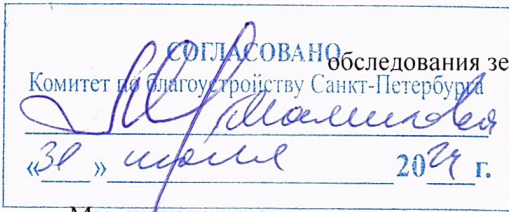 СОГЛАСОВАНО
обследования зе
Комитет по благоустройству Санкт-Петербурга
«31» июля 2024 г.